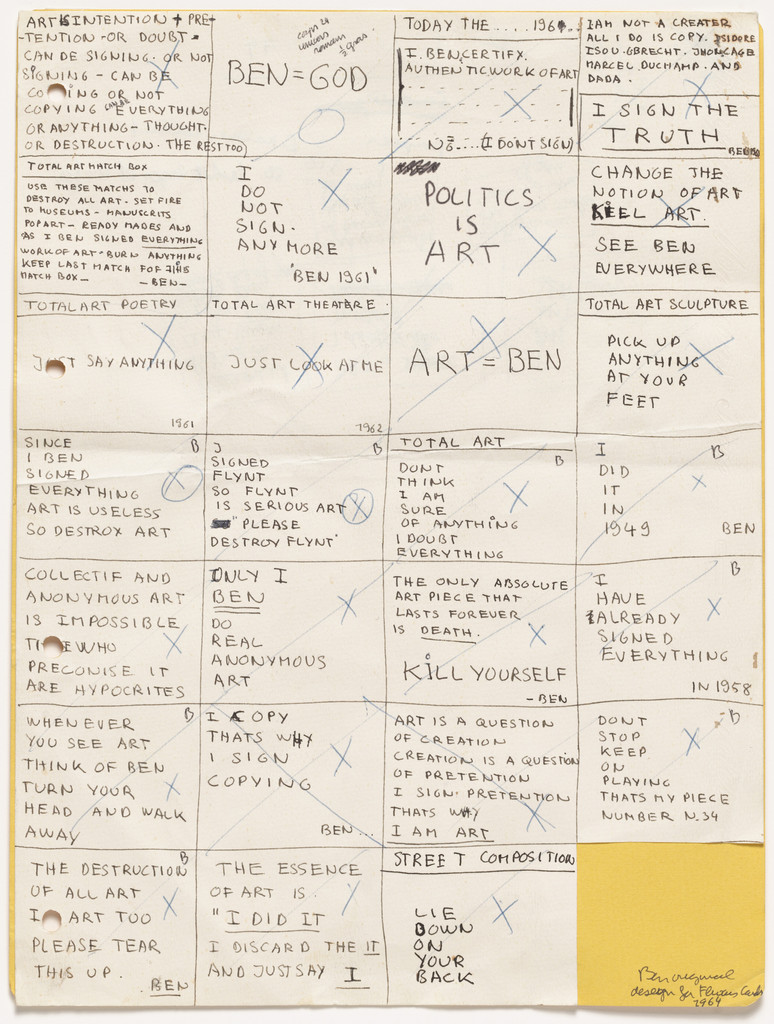 ART IS INTENTION + PRE-
-TENTION - OR DOUBT -
CAN DE SIGNING. OR NOT
SIGNING - CAN BE
CO ING OR NOT
COPYING CAN BE EVERYTHING
OR ANYTHING - THOUGHT.
OR DESTRUCTION. THE REST TOO)
BEN = GOD
TODAY THE .... 196...
I. BEN, CERTIFY.
AUTHENTIC WORK OF ART
No .... (I DONT SIGN)
I AM NOT A CREATER
ALL I DO IS COPY. ISIDORE
ISOU. GBRECHT. JHON CAGE
MARCEL DUCHAMP. AND
DADA.
I SIGN THE
TRUTH
BEN
TOTAL ART MATCH BOX
USE THESE MATCHS TO
DESTROY ALL ART. SET FIRE
TO MUSEUMS - MANUSCRITS
POP ART - READY MADES AND
AS I BEN SIGNED EVERYTHING
WORK OF ART - BURN ANYTHING
KEEP LAST MATCH FOR THIS
MATCH BOX - - BEN -
I
DO
NOT
SIGN.
ANY MORE
"BEN 1961"
POLITICS
IS
ART
CHANGE THE
NOTION OF ART
KEEL ART.
SEE BEN
EVERYWHERE
TOTAL ART POETRY
JUST SAY ANYTHING
1961
TOTAL ART THEATRE
JUST LOOK AT ME
1962
ART = BEN
TOTAL ART SCULPTURE
PICK UP
ANYTHING
AT YOUR
FEET
SINCE B
I BEN
SIGNED
EVERYTHING
ART IS USELESS
SO DESTROX ART
I B
SIGNED
FLYNT
SO FLYNT
IS SERIOUS ART
"PLEASE
DESTROY FLYNT"
TOTAL ART
B
DONT
THINK
I AM
SURE
OF ANYTHING
I DOUBT
EVERYTHING
I B
DID
IT
IN
1949 BEN
COLLECTIF AND
ANONYMOUS ART
IS IMPOSSIBLE
WHO
PRECONISE IT
ARE HYPOCRITES
ONLY I
BEN
DO
REAL
ANONYMOUS
ART
THE ONLY ABSOLUTE
ART PIECE THAT
LASTS FOREVER
IS DEATH.
KILL YOURSELF
- BEN
I B
HAVE
ALREADY
SIGNED
EVERYTHING
IN 1958
WHEN EVER B
YOU SEE ART
THINK OF BEN
TURN YOUR
HEAD AND WALK
AWAY
I COPY
THATS WHY
I SIGN
COPYING
BEN...
ART IS A QUESTION
OF CREATION
CREATION IS A QUESTION
OF PRETENTION
I SIGN. PRETENTION
THATS WHY
I AM ART
DONT B
STOP
KEEP
ON
PLAYING
THATS MY PIECE
NUMBER N. 34
B
THE DESTRUCTION
OF ALL ART
I ART TOO
PLEASE TEAR
THIS UP.
BEN
THE ESSENCE
OF ART IS.
"I DID IT
I DISCARD THE IT
AND JUST SAY I
STREET COMPOSITION
LIE
DOWN
ON
YOUR
BACK
Ben original
design for Fluxus Cards
1964